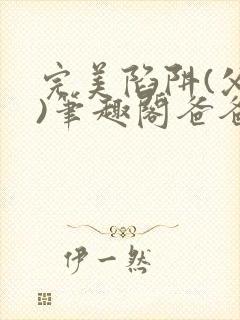 完美陷阱(父
)筆趣閣爸爸
伊一然